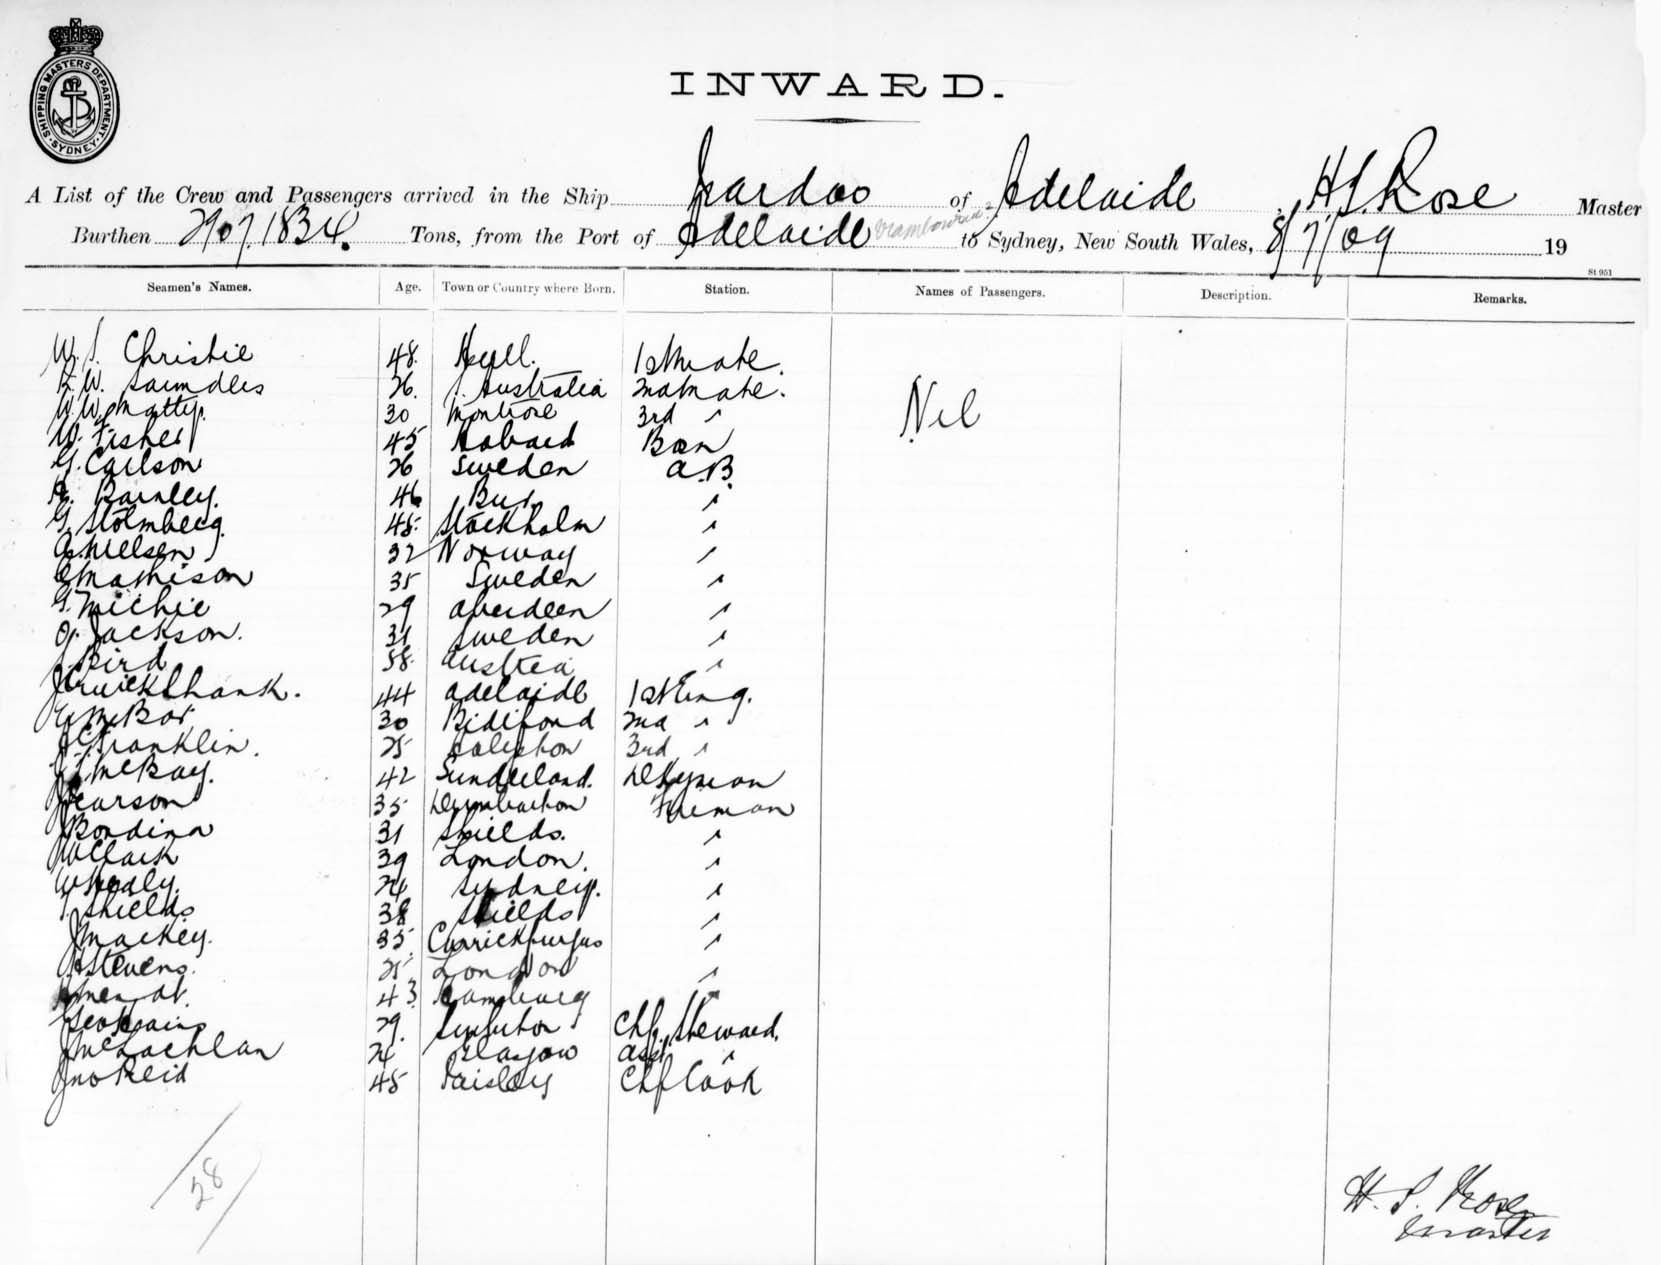 SHIPPING MASTERS DEPARTMENT · SYDNEY ·
INWARD.
A List of the Crew and Passengers arrived in the Ship of Adelaide, H. S. Rose Master
Burthen 1834 Tons, from the Port of Adelaide to Sydney, New South Wales, 8/7/09 19
St 951
Seamen's Names. Age. Town or Country where Born. Station. Names of Passengers. Description. Remarks.
W. S. Christie 48. Hull. 1st Mate.
R. W. Saunders 26. S. Australia 2nd Mate.
30 Montrose 3rd "
Nil
W. Fisher 45 Bsn
G. Carlson 26 Sweden A.B.
Barnley. 46 "
G. Stolmberg. 48. Stockholm "
Nielsen 32 Norway "
Mathison 35 Sweden "
G. Michie 29 Aberdeen "
Jackson. 31 Sweden "
Bird 38. Austria "
J Cruickshank. 44 Adelaide 1st Eng.
30 Bideford 2nd "
Franklin. 25 3rd "
J. McKay. 42 Sunderland. Dkyman
J Pearson 35 Dumbarton Fireman
31 Shields. "
W Clark 39 London. "
W Healy. 24 Sydney. "
T. Shields 38 Shields "
J Mackey. 35. Carrickfurgus "
Stevens. 25 London "
43 Hamburg "
29. Chf. Steward.
J McLachlan 24 Glasgow Asst "
Jno Reid 45 Paisley Chf Cook
28
H. S. Rose
Master